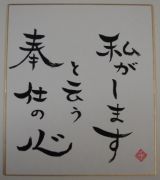 私がします
と云う
奉仕の心